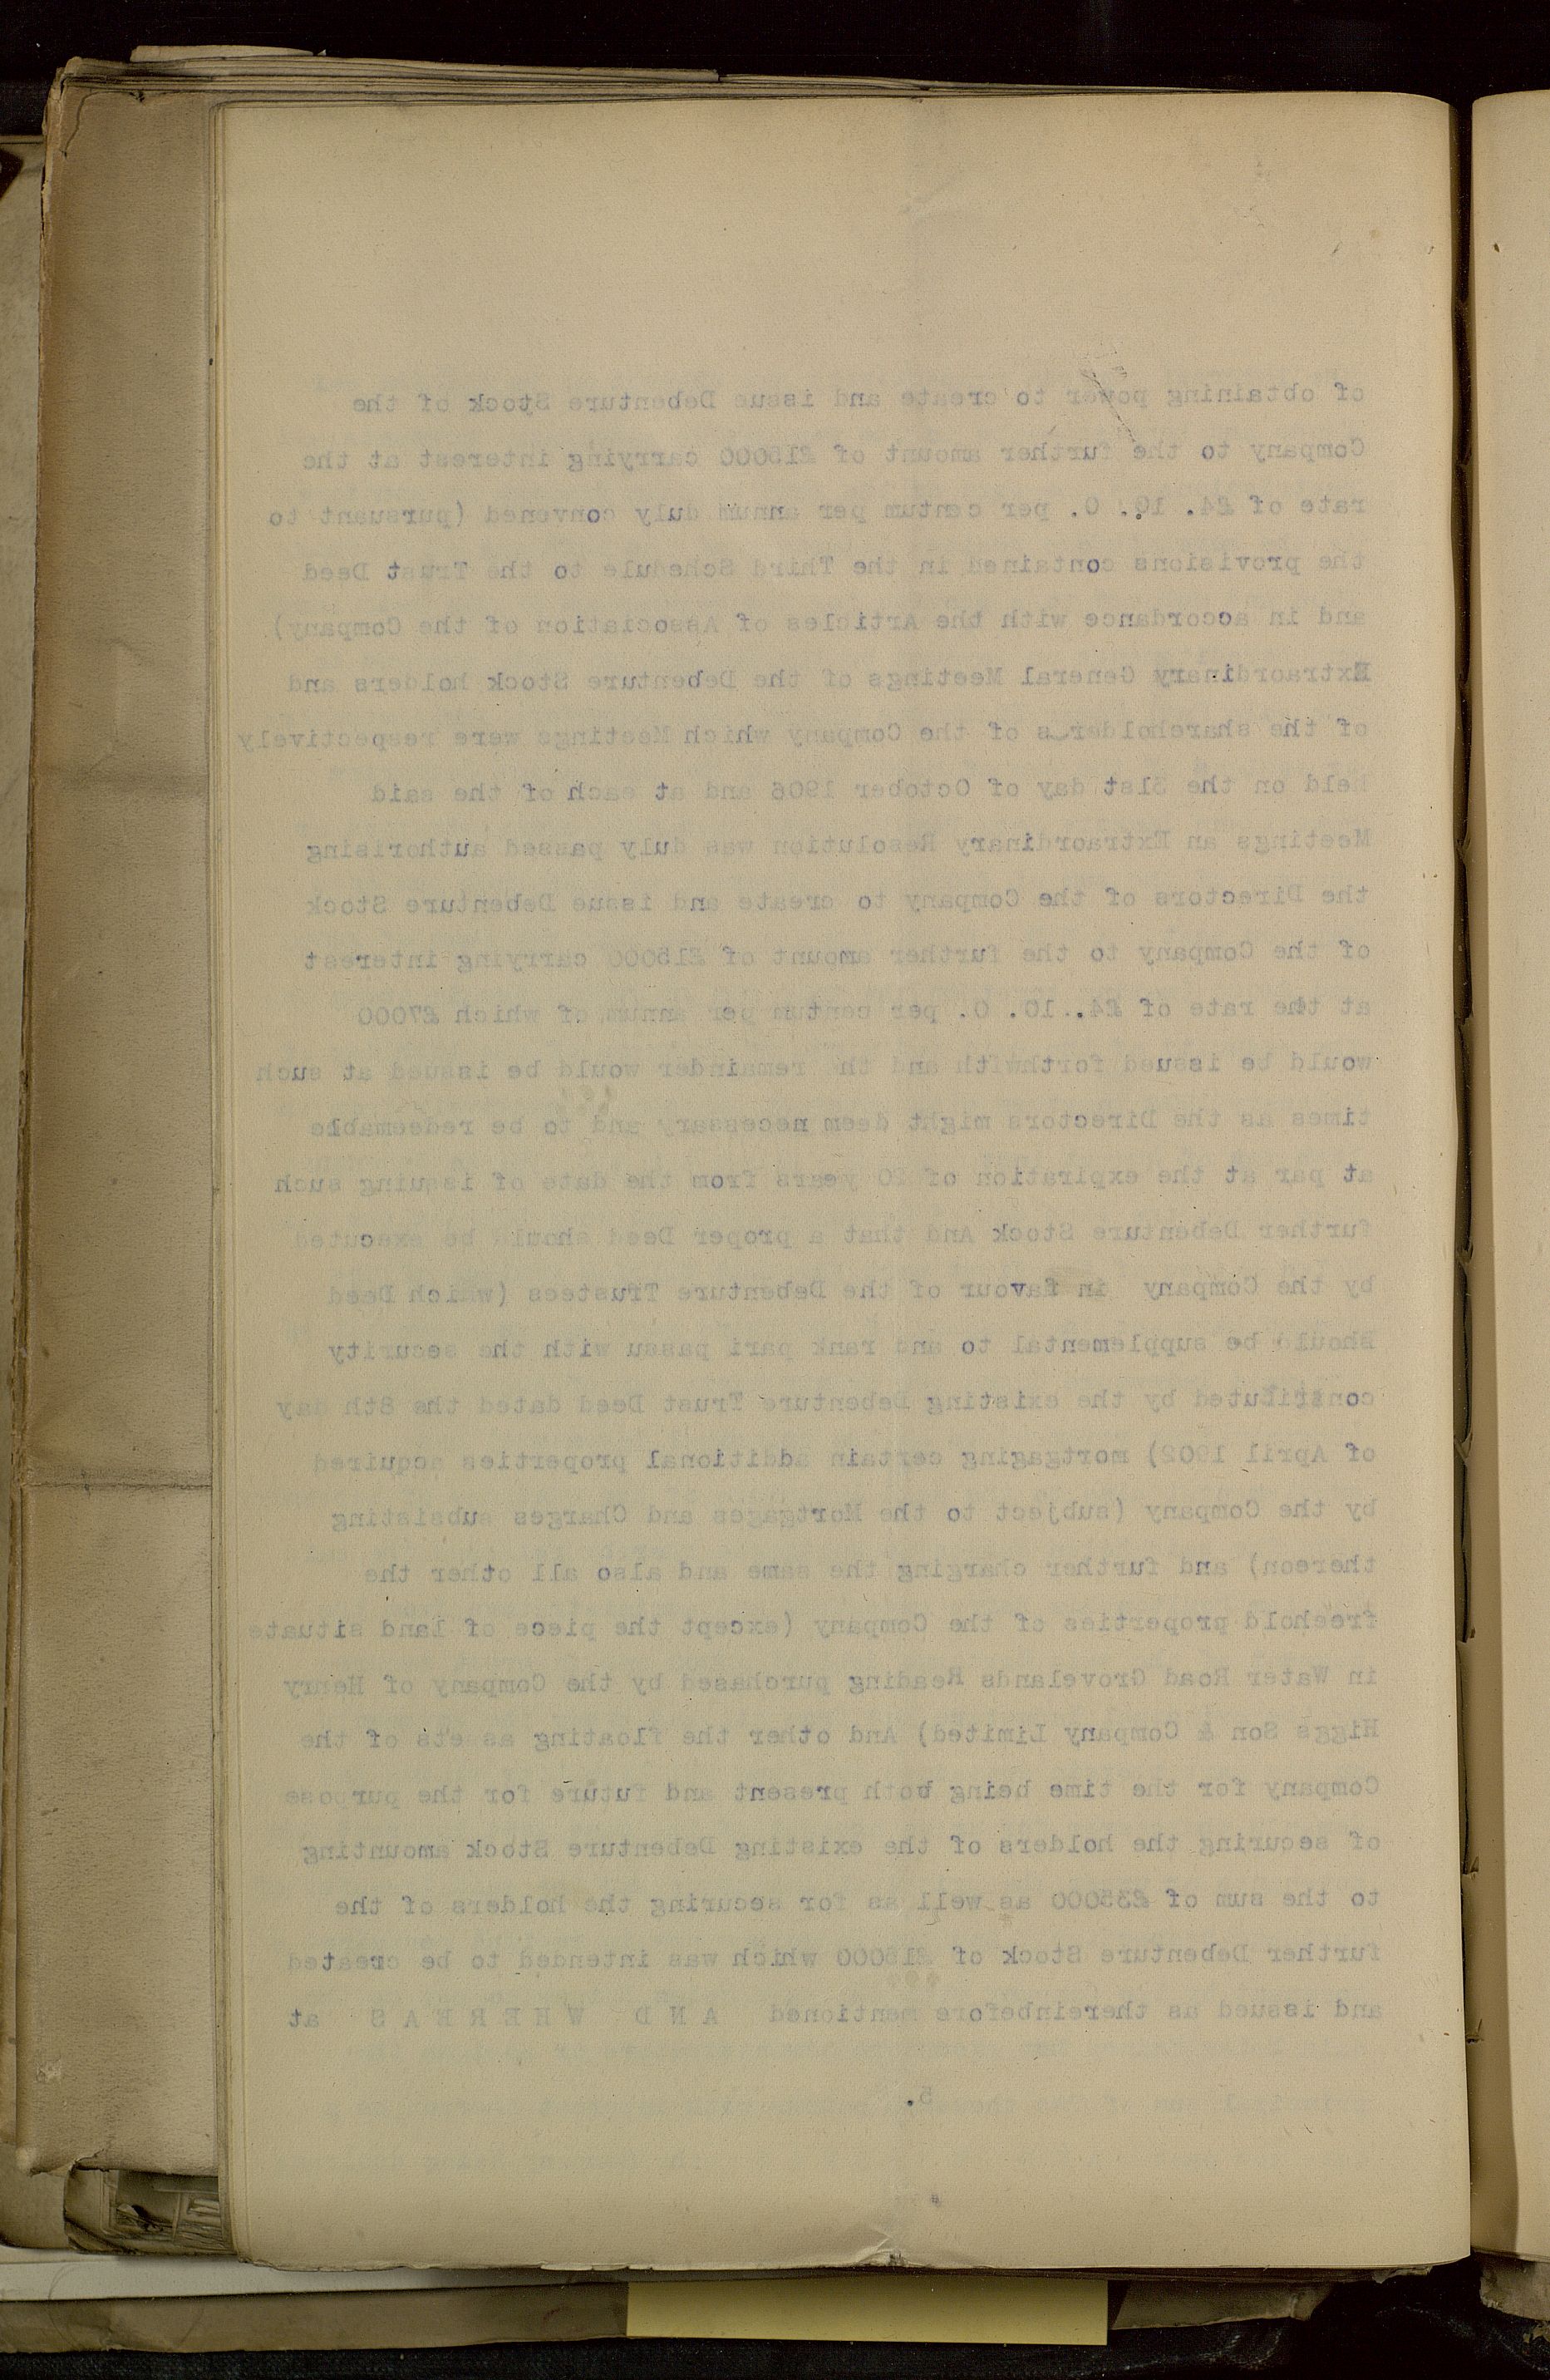 of obtaining power to create and issue Debenture Stock of the
Company to the further amount of £15000 carrying interest at the
rate of £4. 10. 0. per centum per annum duly convened (pursuant to
the provisions contained in the Third Schedule to the Trust Deed
and in accordance with the Articles of Association of the Company)
Extraordinary General Meetings of the Debenture Stock holders and
of the shareholders of the Company which Meetings were respectively
held on the 31st day of October 1906 and at each of the said
Meetings an Extraordinary Resolution was duly passed authorising
the Directors of the Company to create and issue Debenture Stock
of the Company to the further amount of £15000 carrying interest
at the rate of £4. 10. 0. per centum per annum of which £7000
would be issued forthwith and the remainder would be issued at such
times as the Directors might deem necessary and to be redeemable
at par at the expiration of 20 years from the date of issuing such
further Debenture Stock And that a proper Deed should be executed
by the Company in favour of the Debenture Trustees (which Deed
should be supplemental to and rank pari passu with the security
constituted by the existing Debenture Trust Deed dated the 8th day
of April 1902) mortgaging certain additional properties acquired
by the Company (subject to the Mortgages and Charges subsisting
thereon) and further charging the same and also all other the
freehold properties of the Company (except the piece of land situate
in Water Road Grovelands Reading purchased by the Company of Henry
Higgs Son & Company Limited) And other the floating assets of the
Company for the time being both present and future for the purpose
of securing the holders of the existing Debenture Stock amounting
to the sum of £35000 as well as for securing the holders of the
further Debenture Stock of £15000 which was intended to be created
and issued as thereinbefore mentioned A N D W H E R E A S at
5.